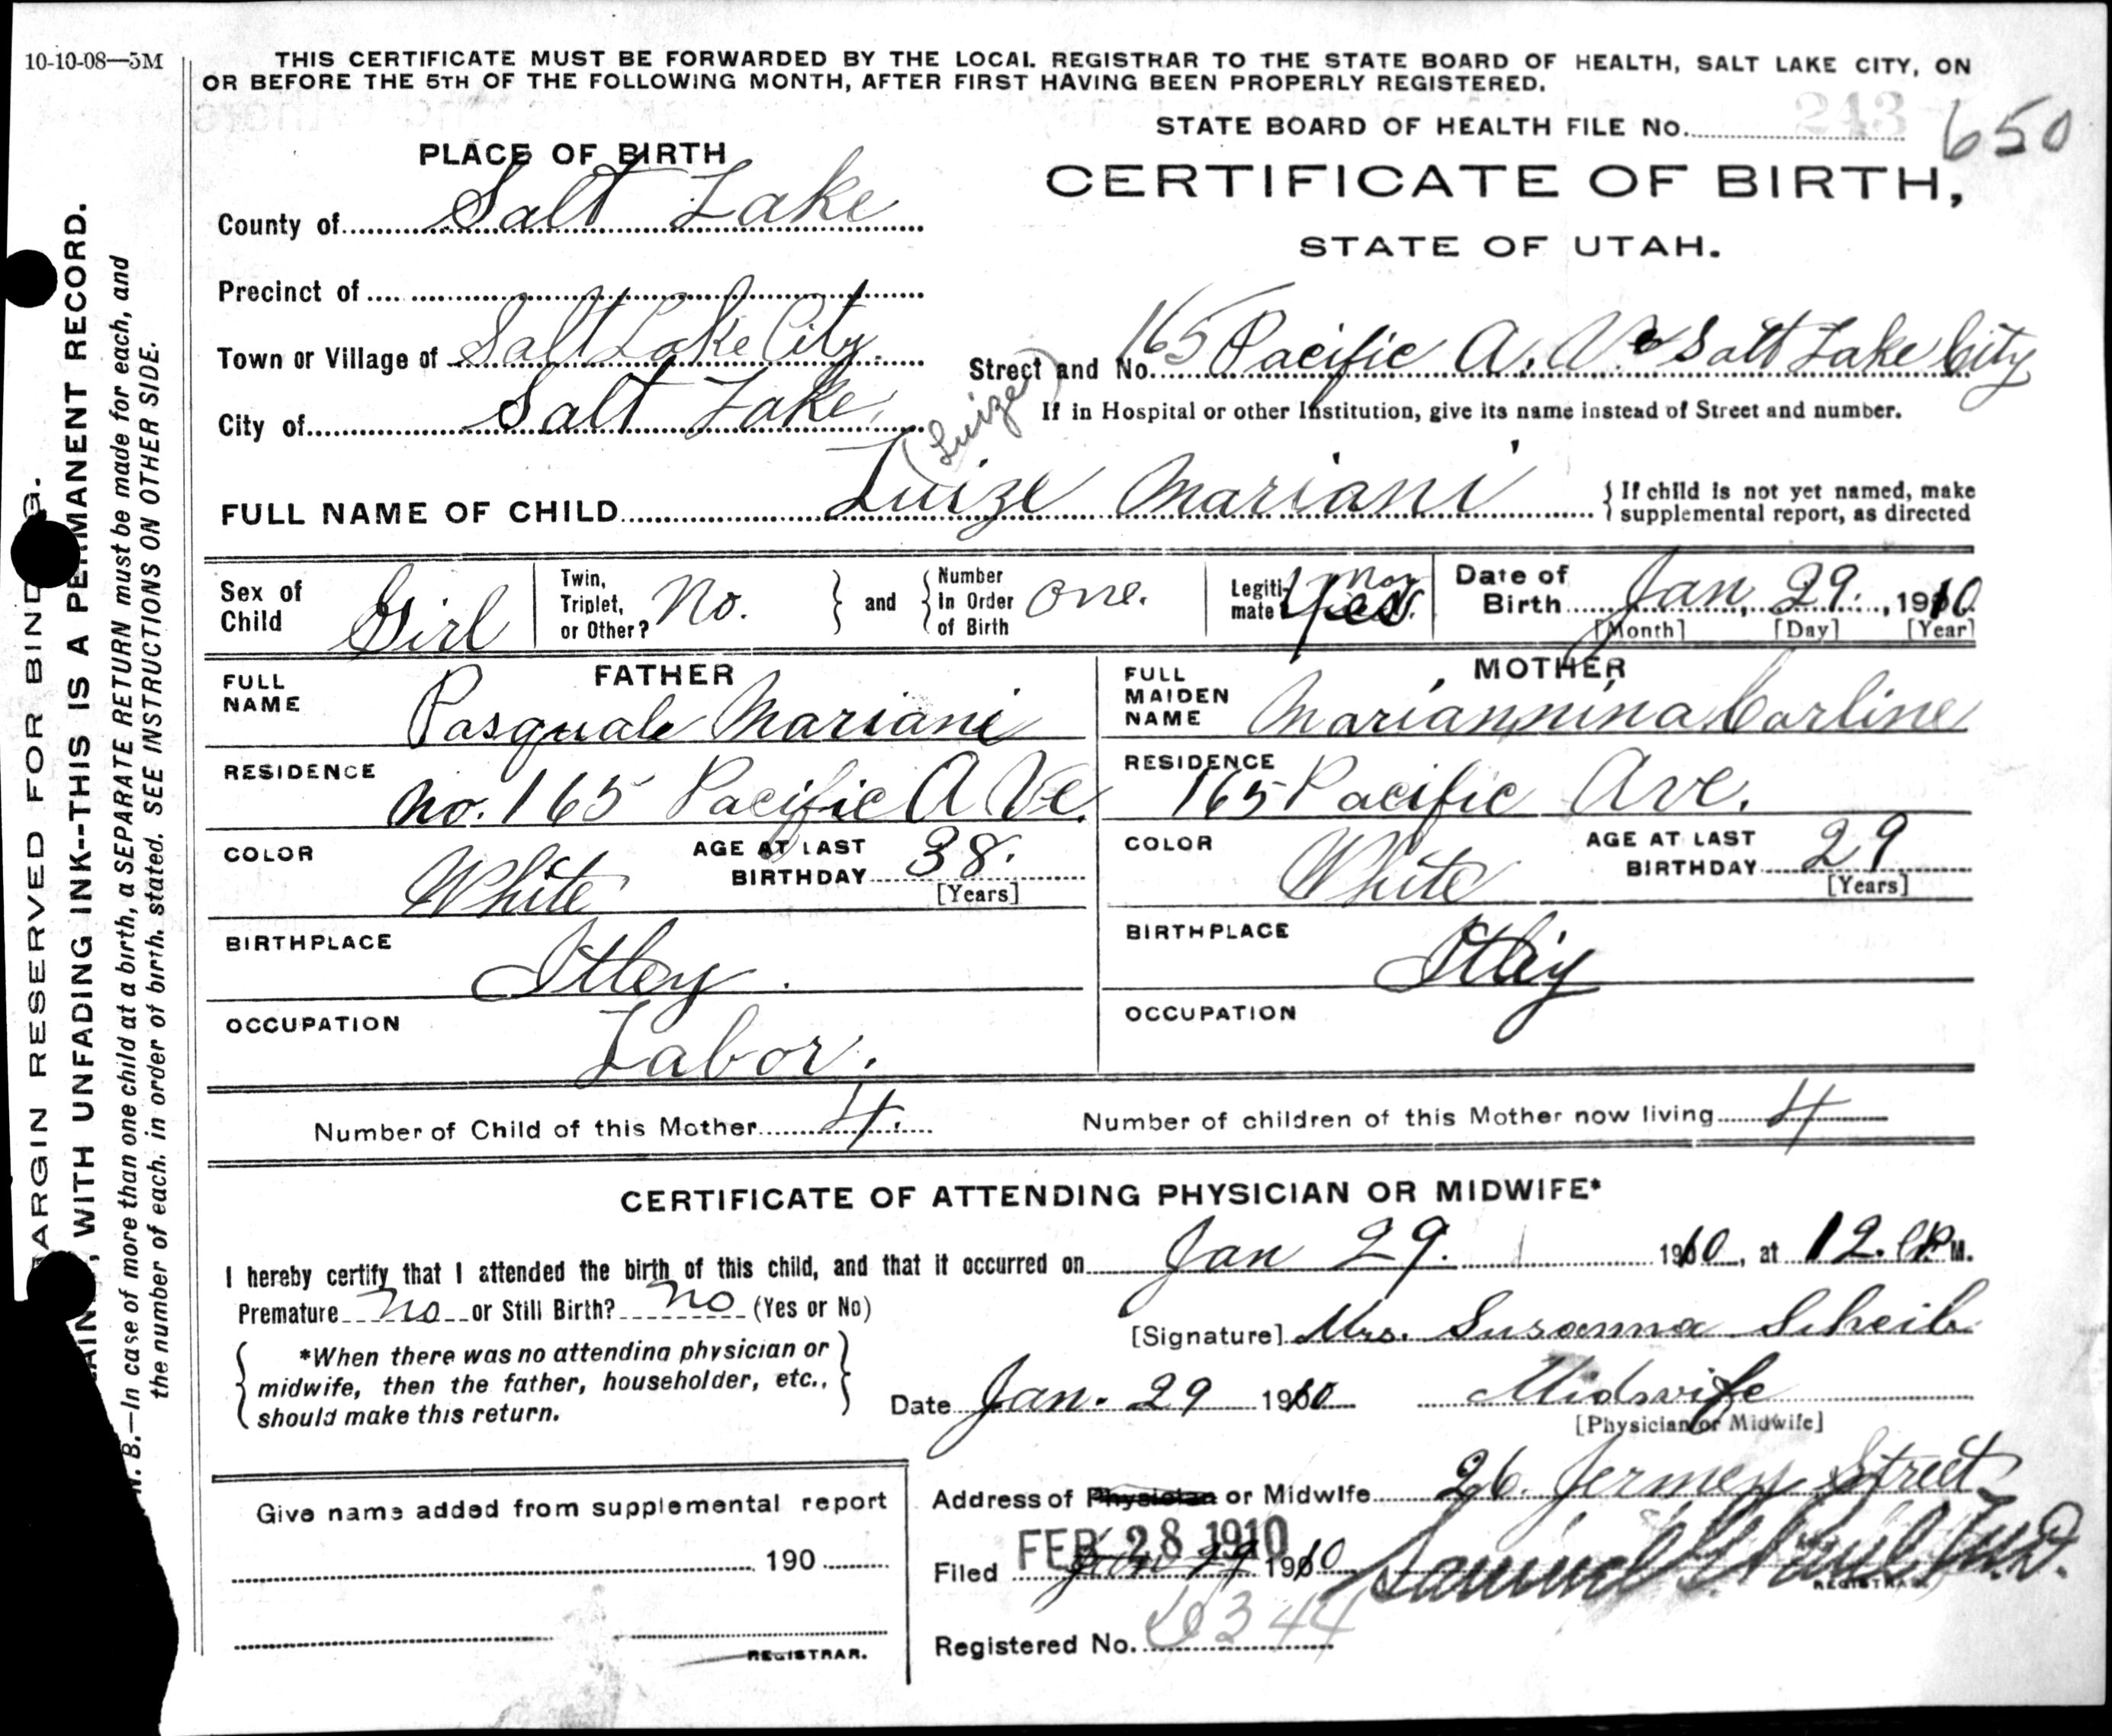 10-10-08—5M
THIS CERTIFICATE MUST BE FORWARDED BY THE LOCAL REGISTRAR TO THE STATE BOARD OF HEALTH, SALT LAKE CITY, ON
OR BEFORE THE 5TH OF THE FOLLOWING MONTH, AFTER FIRST HAVING BEEN PROPERLY REGISTERED.
STATE BOARD OF HEALTH FILE No. 243 650
PLACE OF BIRTH
CERTIFICATE OF BIRTH,
STATE OF UTAH.
County of Salt Lake
Precinct of
Town or Village of Salt Lake City.
Street and No. 165 Pacific A. Ve Salt Lake City
City of Salt Lake.
If in Hospital or other Institution, give its name instead of Street and number.
(Luize)
FULL NAME OF CHILD Luize Mariani
{ If child is not yet named, make
supplemental report, as directed
Sex of Child Girl
Twin, Triplet, or Other? No. } and { Number In Order of Birth one.
Legitimate Yes.
Date of Birth Jan, 29. , 1910
[Month] [Day] [Year]
FATHER
FULL NAME Pasquale Mariani
RESIDENCE No. 165 Pacific A Ve.
COLOR White AGE AT LAST BIRTHDAY 38.
[Years]
BIRTHPLACE Itley.
OCCUPATION Labor.
MOTHER
FULL MAIDEN NAME Mariannina Carline
RESIDENCE 165 Pacific Ave.
COLOR White AGE AT LAST BIRTHDAY 29
[Years]
BIRTHPLACE
OCCUPATION
Number of Child of this Mother 4. Number of children of this Mother now living 4
CERTIFICATE OF ATTENDING PHYSICIAN OR MIDWIFE*
I hereby certify that I attended the birth of this child, and that it occurred on Jan 29. 1910, at 12. P.M.
Premature No or Still Birth? No (Yes or No)
[Signature] Mrs. Susanna Scheib
{ *When there was no attending physician or
midwife, then the father, householder, etc.,
should make this return. }
Date Jan. 29 1910 Midwife
[Physician or Midwife]
Give name added from supplemental report
190
REGISTRAR.
Address of Physician or Midwife 26. Jermey Street
Filed FEB 28 1910 Jan 29 1910 Samuel G Paul M.D.
REGISTRAR
Registered No. 344
MARGIN RESERVED FOR BINDING.
WITH UNFADING INK--THIS IS A PERMANENT RECORD.
N. B.—In case of more than one child at a birth, a SEPARATE RETURN must be made for each, and
the number of each, in order of birth, stated. SEE INSTRUCTIONS ON OTHER SIDE.